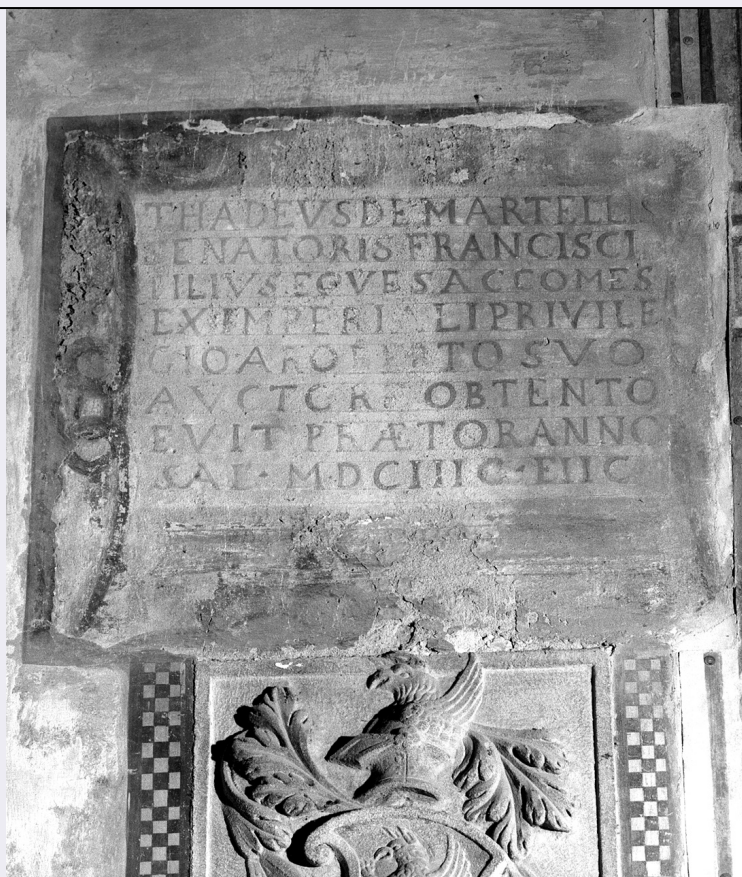 THADEVS DE MARTELLIS
SENATORIS FRANCISCI
FILIVS EQVES AC COMES
EX IMPERIALI PRIVILE
GIO A ROBERTO SVO
AVCTORE OBTENTO
FVIT PRÆTOR ANNO
SAL · MDCIII